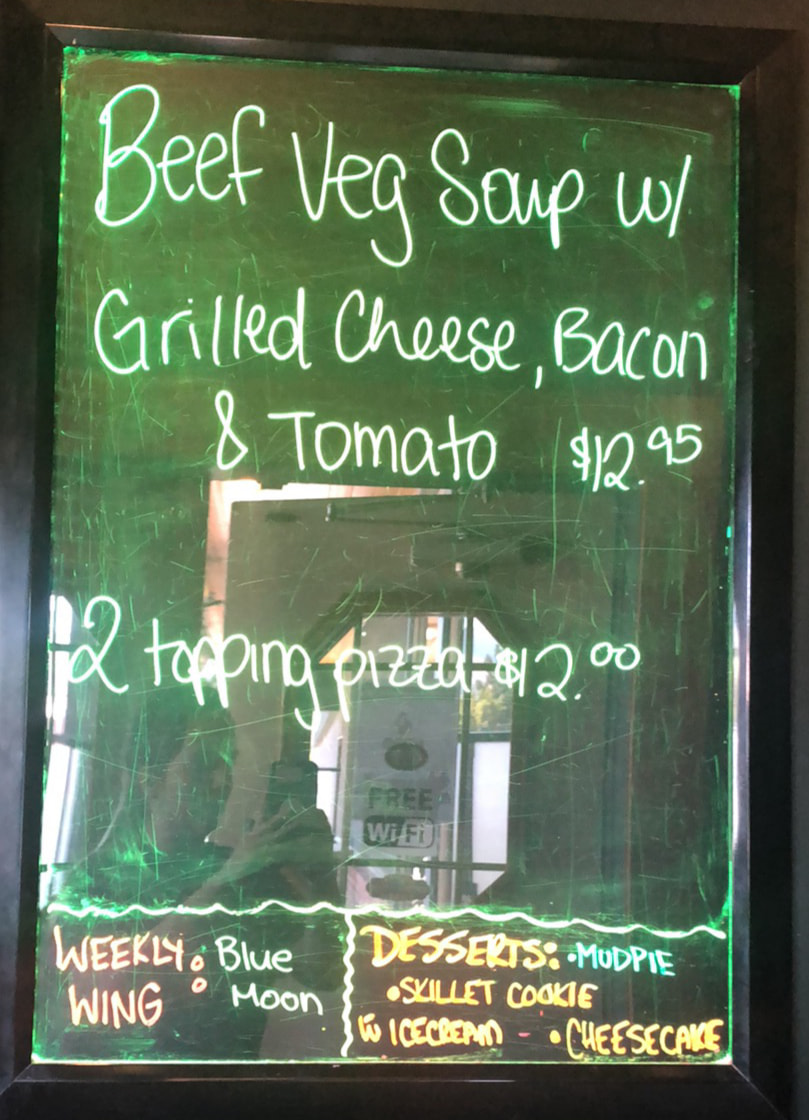 Beef Veg Soup w/
Grilled Cheese, Bacon
& Tomato $12.95
2 topping pizza $12.00
FREE
WiFi
WEEKLY WING : Blue Moon
DESSERTS: •MUDPIE
•SKILLET COOKIE
w ICECREAM •CHEESECAKE